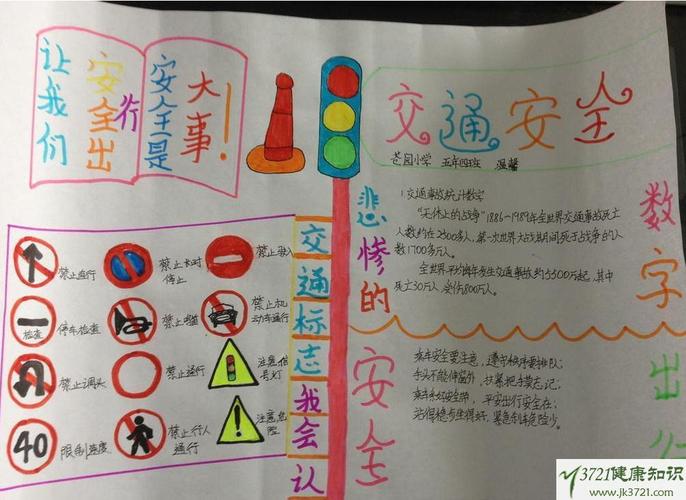 让我们
安全出
行
安全是
大事！
交通安全
苍园小学 五年四班 温馨
悲惨的
数字
1.交通事故统计数字
"无休止的战争"1886-1989年全世界交通事故死亡
人数约在2300多人，第一次世界大战期间死于战争的人
数1700多万人。
全世界平均每年发生交通事故约5500万起，其中
死亡30万人，受伤800万人。
交通标志我会认
禁止直行
禁止长时
停止
禁止驶入
检查
停车检查
禁止鸣笛
禁止机
动车通行
禁止调头
禁止通行
注意信
号灯
40
限制速度
禁止行人
通行
注意危
险
安全
出行
乘车安全要注意，遵守秩序要排队；
手头不能伸窗外，扶紧把手莫忘记；
平安出行安全在；
3721健康知识
www.jk3721.com